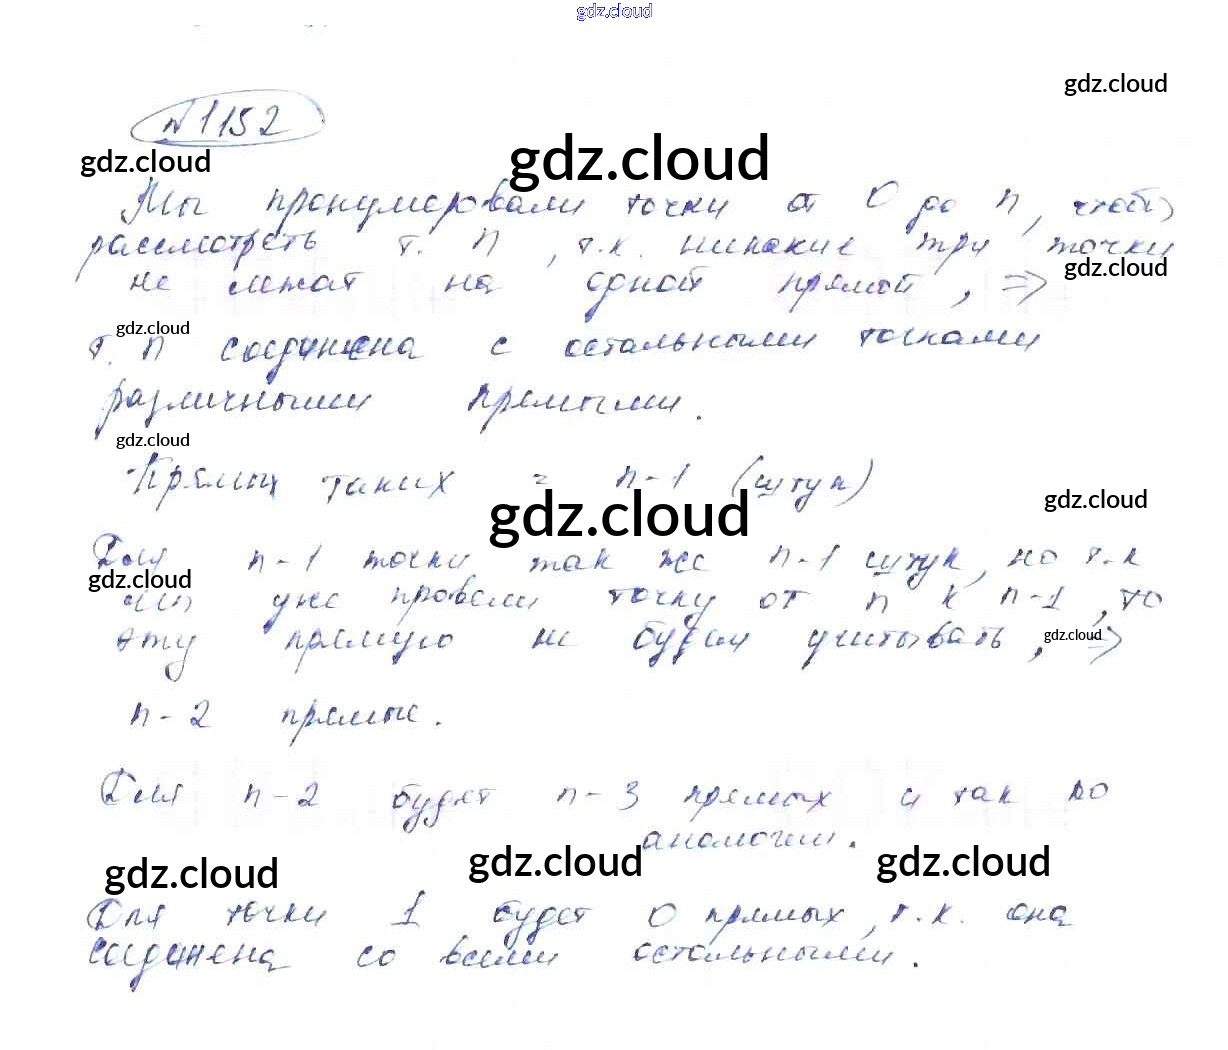 gdz.cloud
gdz.cloud
№1152
gdz.cloud
gdz.cloud
Мы пронумеровали точки от 0 до n, чтобы
рассмотреть т. n, т.к. никакие три точки
gdz.cloud
не лежат на одной прямой, =>
gdz.cloud
т. n соединена с остальными точками
различными прямыми.
gdz.cloud
Прямых таких = n-1 (штук)
gdz.cloud
gdz.cloud
Для n-1 точки так же n-1 штук, но т.к
gdz.cloud
мы уже провели точку от n к n-1, то
эту прямую не будем учитывать, =>
gdz.cloud
n-2 прямые.
Для n-2 будет n-3 прямых и так по
аналогии.
gdz.cloud
gdz.cloud
gdz.cloud
Для точки 1 будет 0 прямых, т.к. она
соединена со всеми остальными.